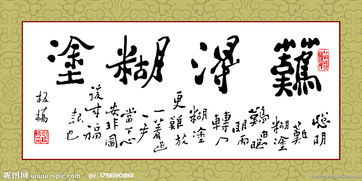 難得糊塗
聰明
難
糊塗
難
明而
轉入
糊塗
更難放
一著退
一步
當下心
安非圖
後來福
報也
板橋
昵图网 www.nipic.com BY:175690861